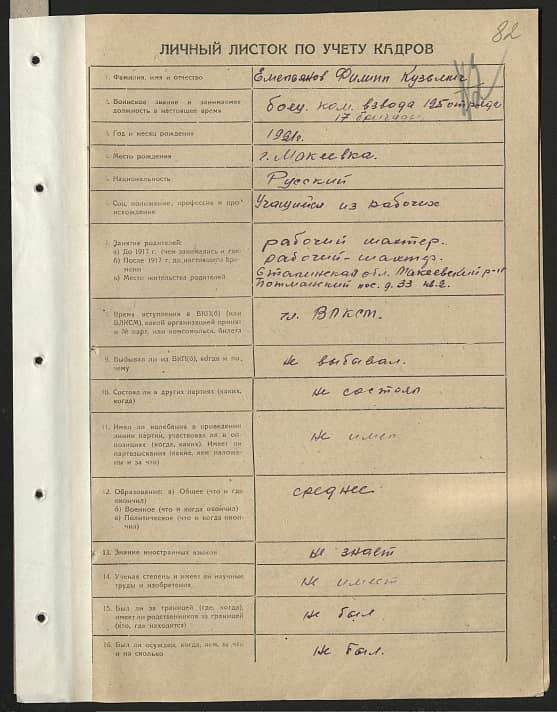 82
ЛИЧНЫЙ ЛИСТОК ПО УЧЕТУ КАДРОВ
1. Фамилия, имя и отчество
Емельянов Филипп Кузьмич
2. Воинское звание и занимаемая
должность в настоящее время
боец. ком. взвода 125 отряда
17 бригады
3. Год и месяц рождения
1921г.
4. Место рождения
г. Макеевка.
5. Национальность
Русский
6. Соц. положение, профессия и про-
исхождение
Учащийся из рабочих
7. Занятие родителей:
а) До 1917 г. (чем занимались и где)
б) После 1917 г. до настоящего вре-
мени
в) Место жительства родителей
рабочий шахтер.
рабочий-шахтер.
Сталинская обл. Макеевский р-н
пос. д. 33 кв. 2.
8. Время вступления в ВКП(б) (или
ВЛКСМ), какой организацией принят
и № парт. или комсомольск. билета
чл. ВЛКСМ.
9. Выбывал ли из ВКП(б), когда и по-
чему
не выбывал.
10. Состоял ли в других партиях (каких,
когда)
не состоял
11. Имел ли колебания в проведении
линии партии, участвовал ли в оп-
позициях (когда, каких). Имеет ли
партвзыскания (какие, кем наложе-
ны и за что)
не имел
12. Образование: а) Общее (что и где
окончил)
б) Военное (что и когда окончил)
в) Политическое (что и когда окон-
чил)
среднее
13. Знание иностранных языков
не знает
14. Ученая степень и имеет ли научные
труды и изобретения
не имеет
15. Был ли за границей (где, когда),
имеет ли родственников за границей
(кто, где находится)
не был
16. Был ли осужден, когда, кем, за что
и на сколько
не был.